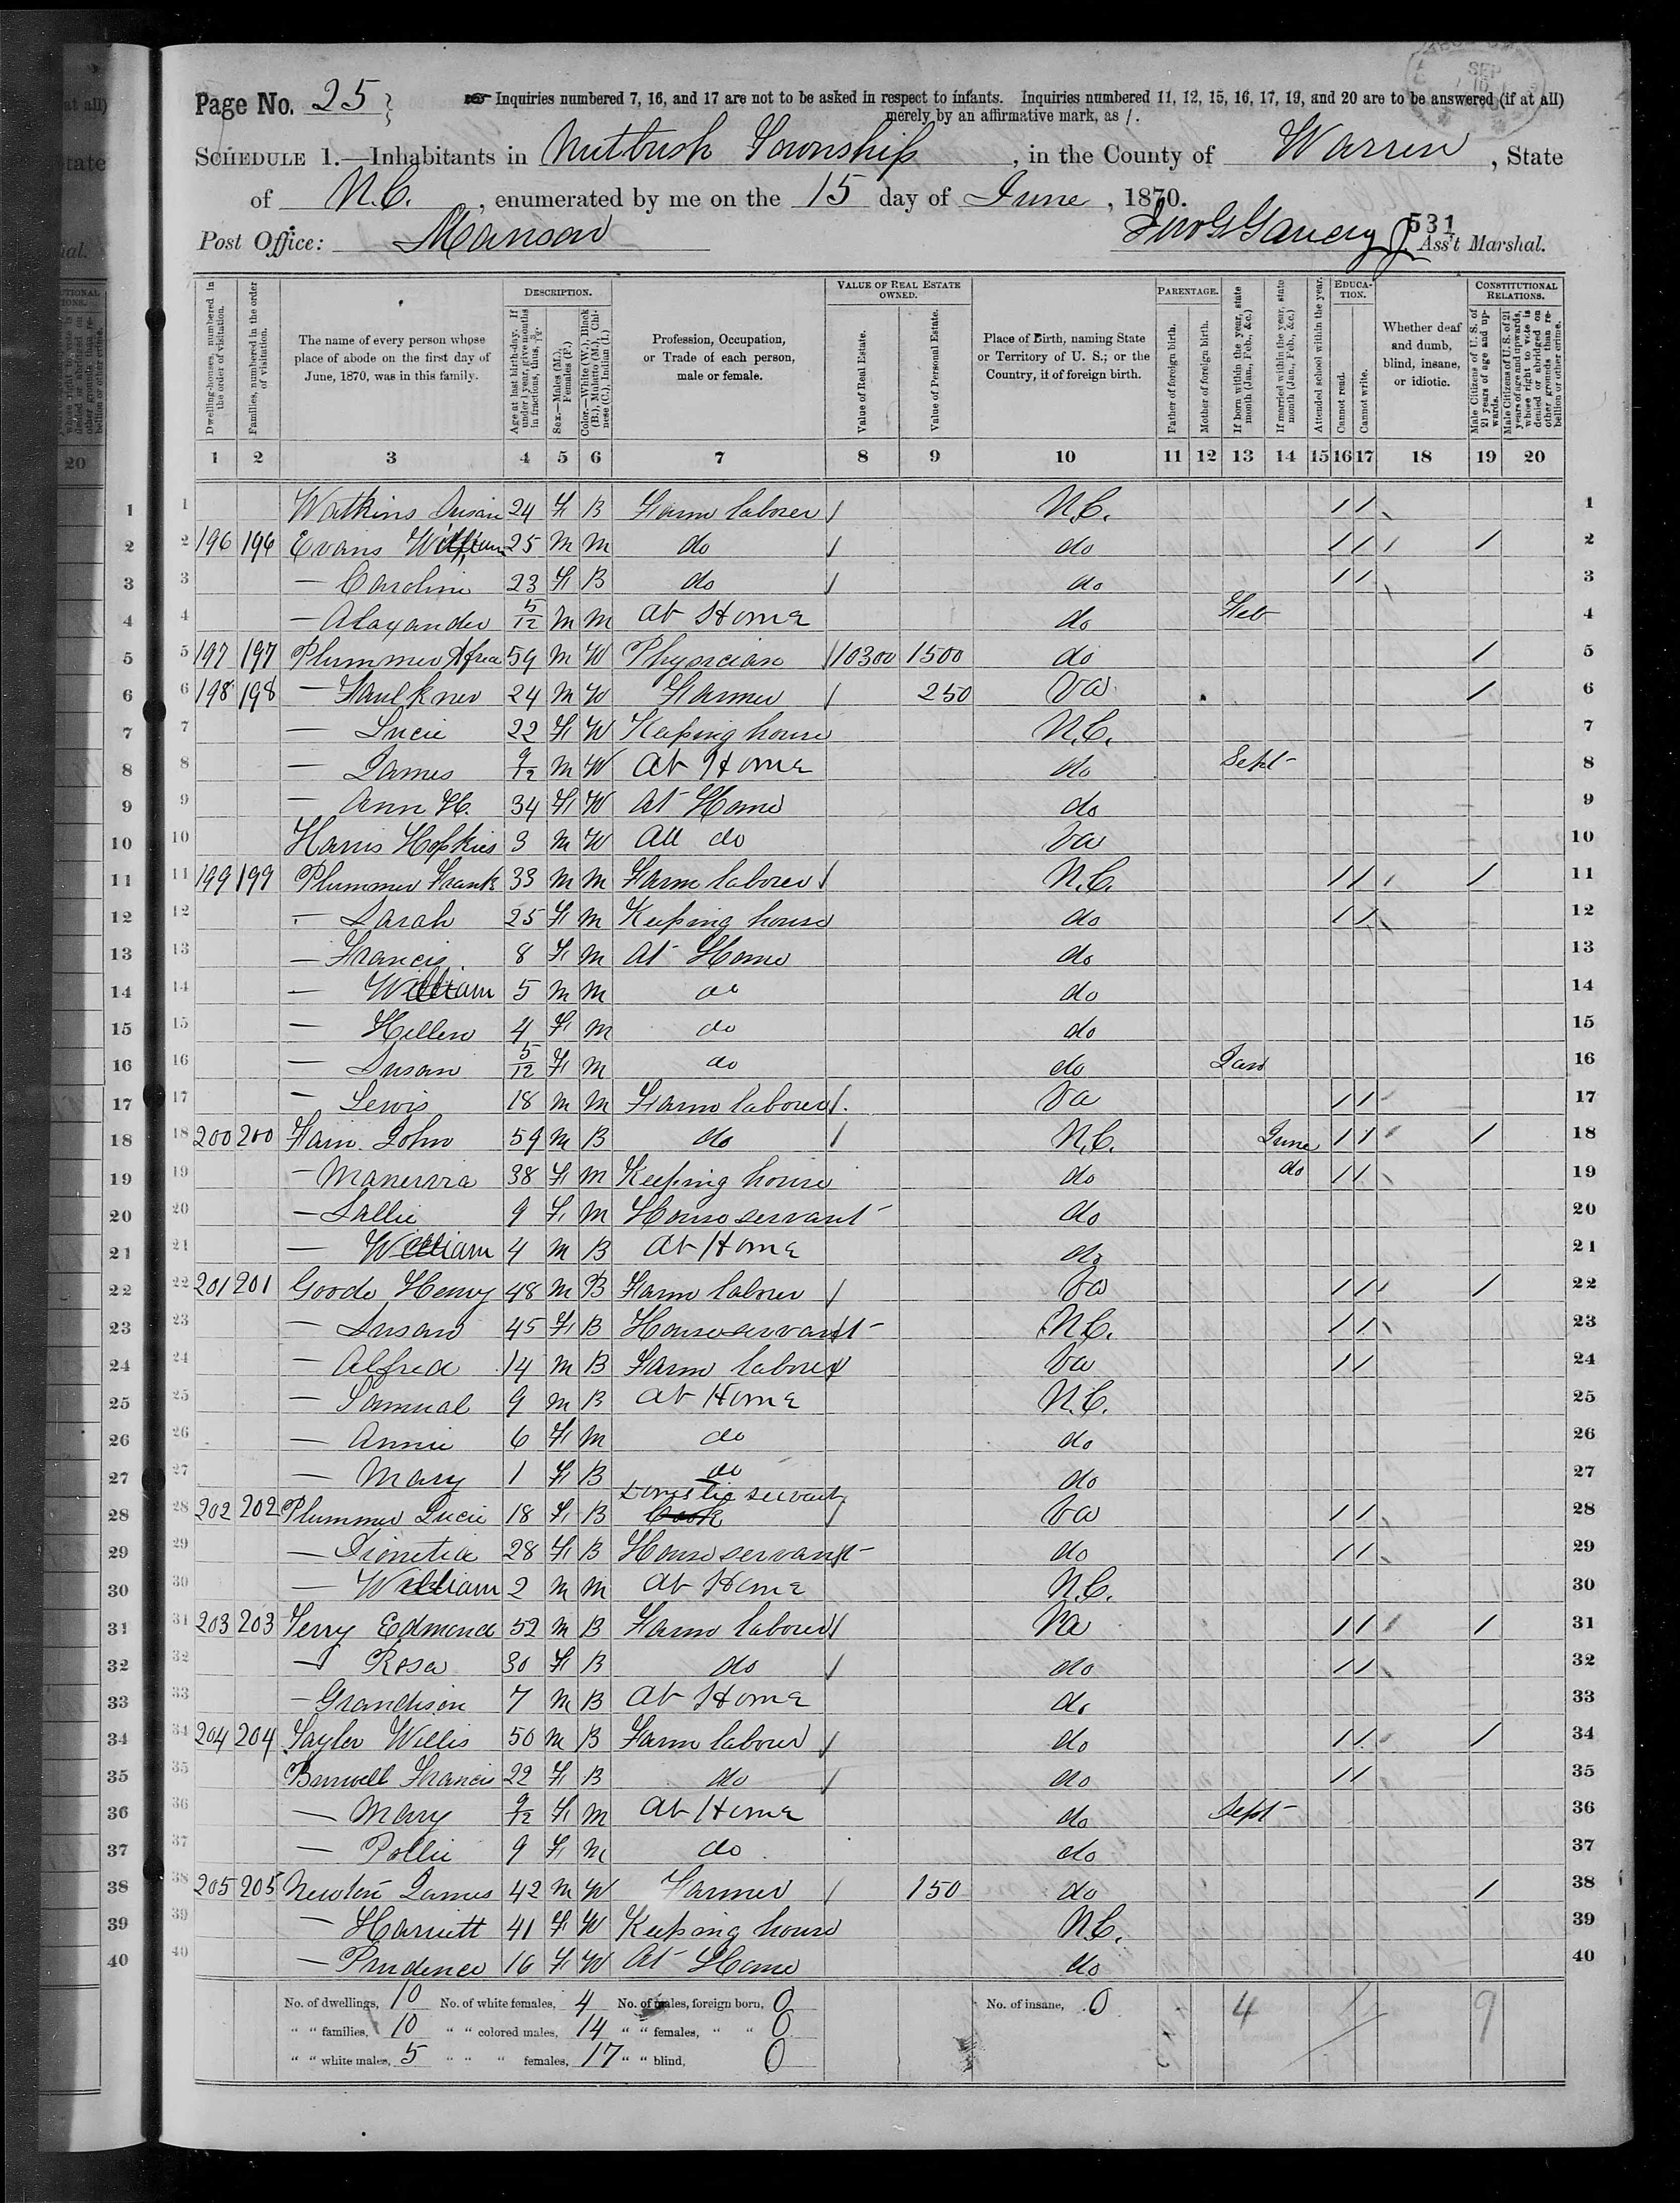 Page No. 25
Inquiries numbered 7, 16, and 17 are not to be asked in respect to infants. Inquiries numbered 11, 12, 15, 16, 17, 19, and 20 are to be answered (if at all)
merely by an affirmative mark, as /.
SCHEDULE 1.—Inhabitants in Nutbush Township, in the County of Warren, State
of N.C., enumerated by me on the 15 day of June, 1870.
Post Office: Manson
531
Ass't Marshal.
Dwelling-houses, numbered in the order of visitation.
Families, numbered in the order of visitation.
The name of every person whose place of abode on the first day of June, 1870, was in this family.
DESCRIPTION.
Age at last birth-day. If under 1 year, give months in fractions, thus, 3/12.
Sex.—Males (M.), Females (F.)
Color.—White (W.), Black (B.), Mulatto (M.), Chinese (C.), Indian (I.)
Profession, Occupation, or Trade of each person, male or female.
VALUE OF REAL ESTATE OWNED.
Value of Real Estate.
Value of Personal Estate.
Place of Birth, naming State or Territory of U. S.; or the Country, if of foreign birth.
PARENTAGE.
Father of foreign birth.
Mother of foreign birth.
If born within the year, state month (Jan., Feb., &c.)
If married within the year, state month (Jan., Feb., &c.)
Attended school within the year.
EDUCATION.
Cannot read.
Cannot write.
Whether deaf and dumb, blind, insane, or idiotic.
CONSTITUTIONAL RELATIONS.
Male Citizens of U. S. of 21 years of age and upwards.
Male Citizens of U. S. of 21 years of age and upwards, whose right to vote is denied or abridged on other grounds than rebellion or other crime.
1 2 3 4 5 6 7 8 9 10 11 12 13 14 15 16 17 18 19 20
1 Watkins Susan 24 F B Farm laborer / N.C. / / 1
2 196 196 Evans William 25 M M do / do / / / 2
3 — Caroline 23 F B do / do / / 3
4 — Alaxander 5/12 M M At Home do Feb 4
5 197 197 Plummer 59 M W Physician / 10300 1500 do / 5
6 198 198 — Faulkner 24 M W Farmer / 250 Va / 6
7 — Lucie 22 F W Keeping house N.C. 7
8 — James 9/12 M W At Home do Sept 8
9 — Ann H. 34 F W At Home do 9
10 Harris Hopkins 3 M W At do Va 10
11 199 199 Plummer Frank 33 M M Farm laborer / N.C. / / / 11
12 — Sarah 25 F M Keeping house do / / 12
13 — Francis 8 F M At Home do 13
14 — William 5 M M do do 14
15 — Hellen 4 F M do do 15
16 — Susan 5/12 F M do do Jan 16
17 — Lewis 18 M M Farm laborer / Va / / 17
18 200 200 Fain John 59 M B do / N.C. June / / / 18
19 — Manervia 38 F M Keeping house do do / / 19
20 — Sallie 9 F M House servant do 20
21 — William 4 M B At Home do 21
22 201 201 Goode Henry 48 M B Farm laborer / Va / / / 22
23 — Susan 45 F B House servant N.C. / / 23
24 — Alfred 14 M B Farm laborer Va / / 24
25 — Samual 9 M B At Home N.C. 25
26 — Annie 6 F M do do 26
27 — Mary 1 F B do do 27
28 202 202 Plummer Lucie 18 F B Domestic servant Cook / Va / / 28
29 — 28 F B House servant do / / 29
30 — William 2 M M At Home N.C. 30
31 203 203 Terry Edmond 52 M B Farm laborer / Va / / / 31
32 — Rosa 30 F B do / do / / 32
33 — Grandison 7 M B At Home do 33
34 204 204 Taylor Willis 50 M B Farm laborer / do / / / 34
35 Burwell Francis 22 F B do / do / / 35
36 — Mary 9/12 F M At Home do Sept 36
37 — Pollie 9 F M do do 37
38 205 205 Newton James 42 M W Farmer / 150 do / 38
39 — Harriett 41 F W Keeping house N.C. 39
40 — Prudence 16 F W At Home do 40
No. of dwellings, 10 No. of white females, 4 No. of males, foreign born, 0 No. of insane, 0 4 9
" " families, 10 " " colored males, 14 " " females, " " 0
" " white males, 5 " " " females, 17 " " blind, 0